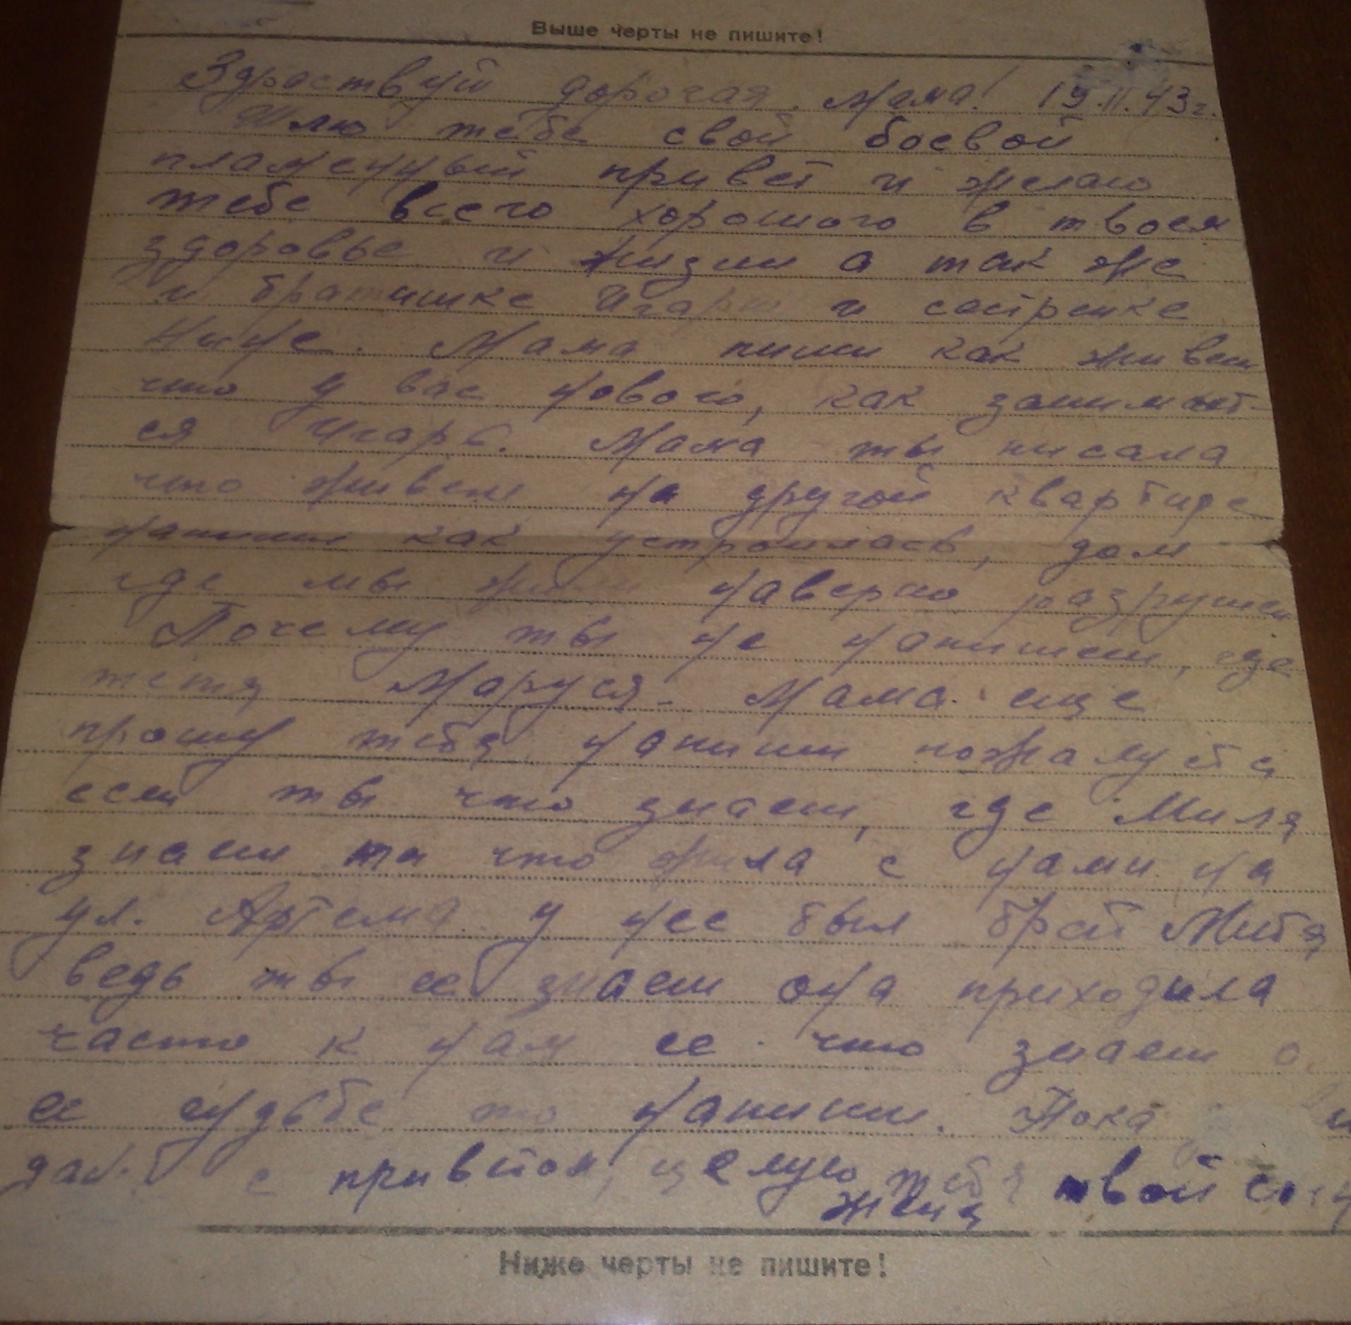 Выше черты не пишите!
Здраствуй дорогая Мама! 19.II.43г.
Шлю тебе свой боевой
пламенный привет и желаю
тебе всего хорошого в твоем
здоровье и жизни а так же
и братишке Игарю и сестренке
Мама пиши как живеш
что у вас нового, как занимает-
ся Игарь. Мама ты писала
что живеш на другой квартире
напиши как устроилась, дом
где мы жили наверно разрушен
Почему ты не напишеш, где
тетя Маруся. Мама еще
прошу тебя напиши пожалуста
если ты что знаеш, где Миля
знаеш та что жила с нами на
ул. Артема у нее был брат Митя
ведь ты ее знаеш она приходила
часто к нам ее что знаеш о
ее судьбе то напиши. Пока
с приветом, целую тебя твой сын
Женя
Ниже черты не пишите!